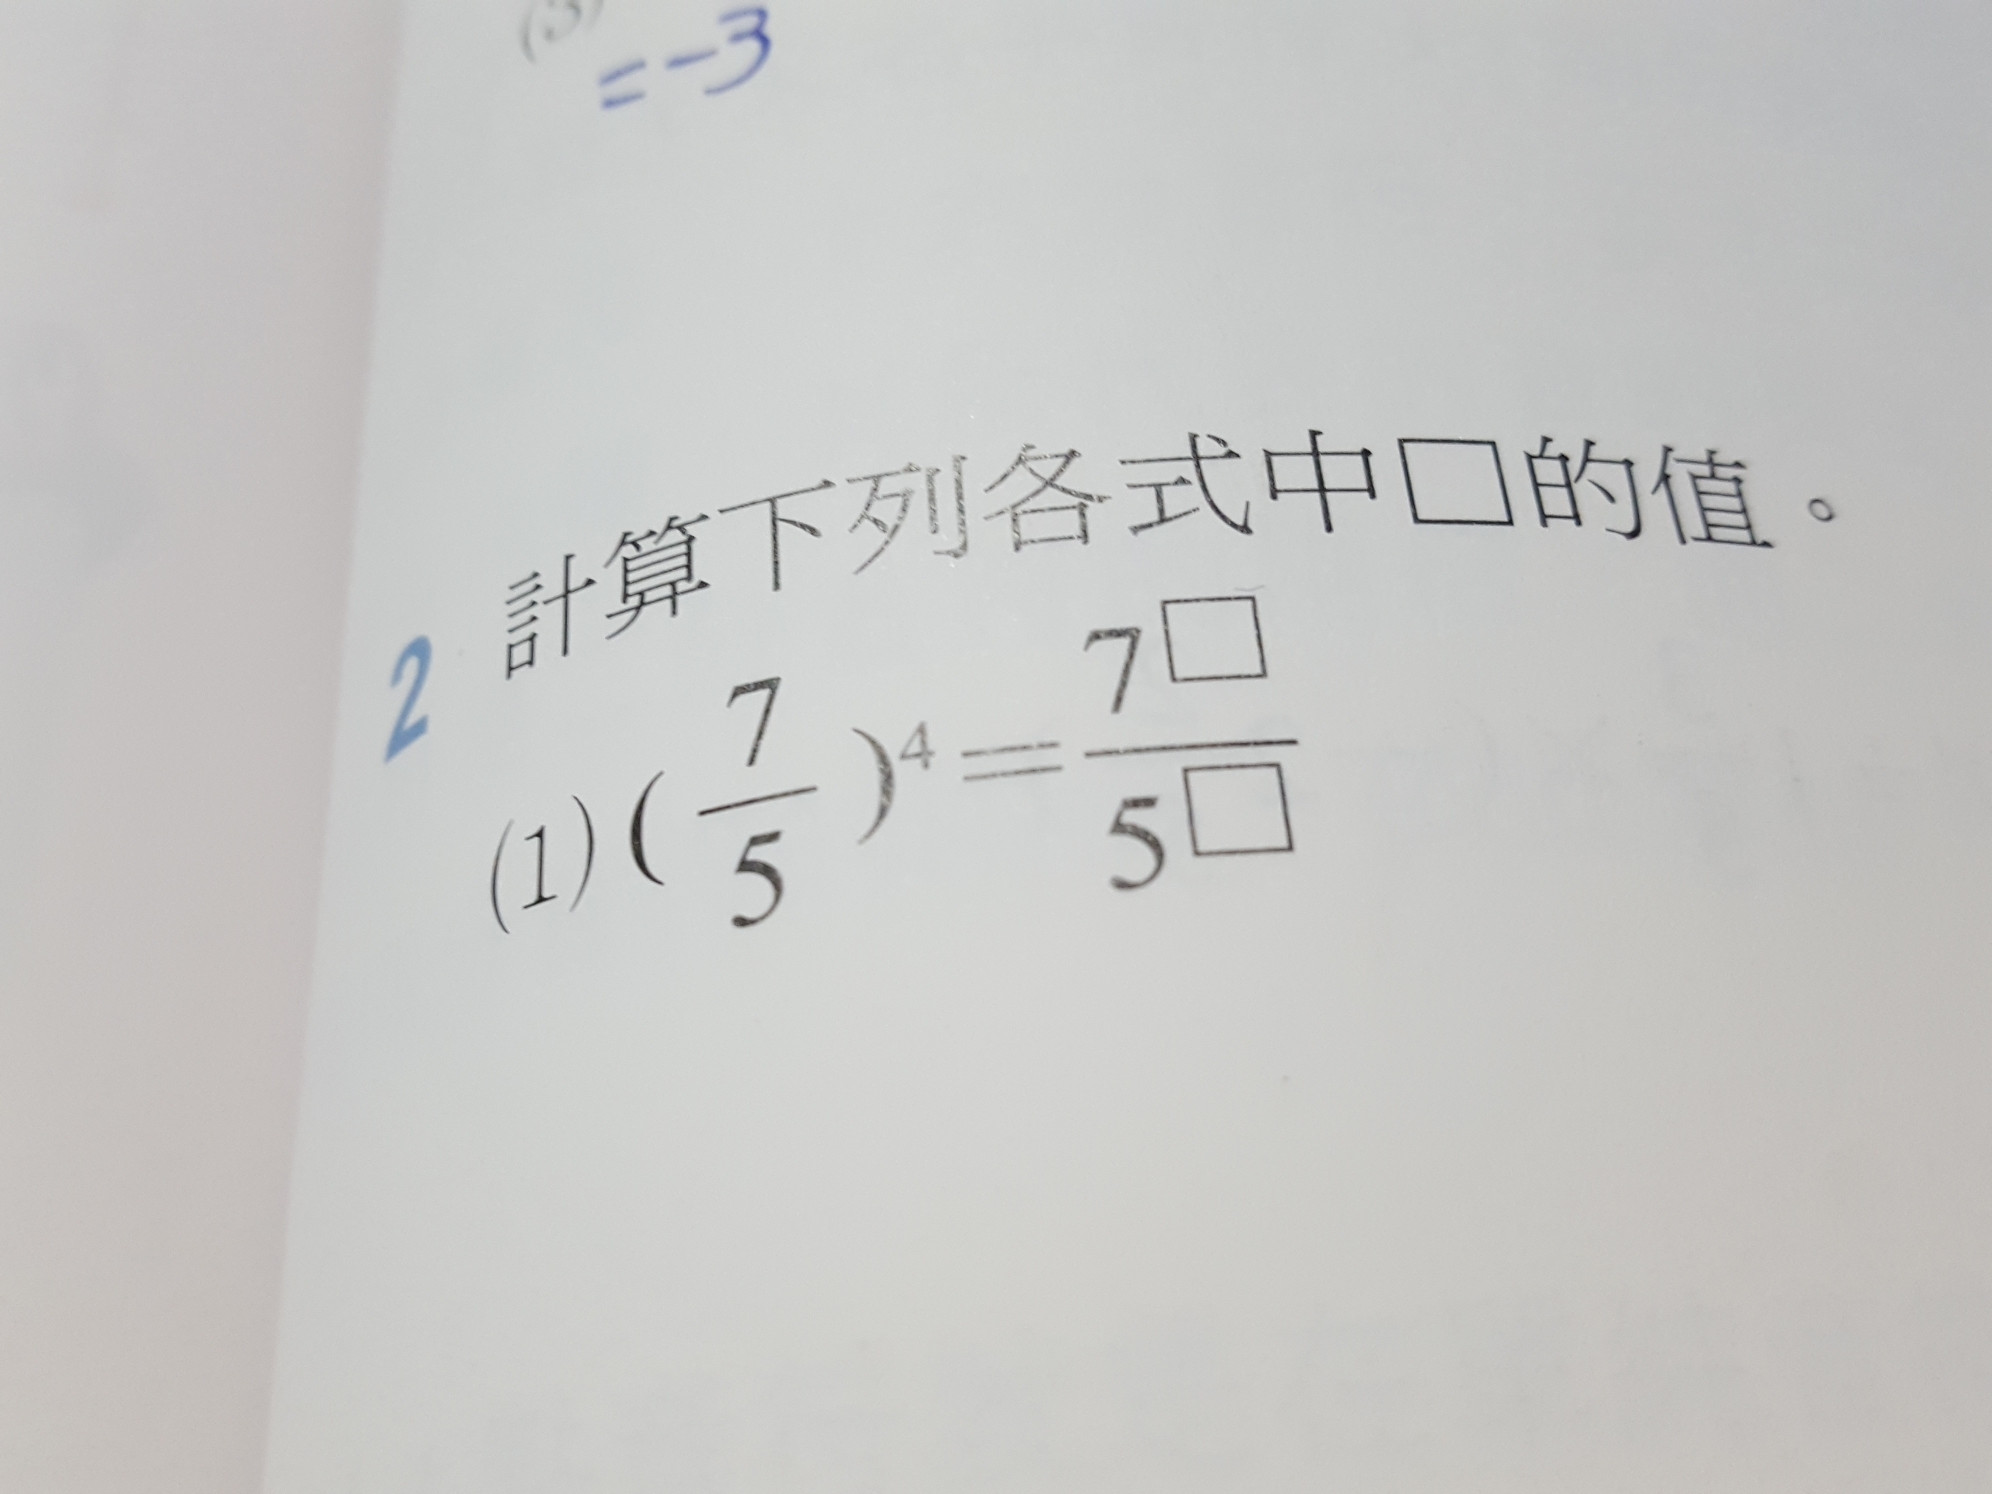 (3)
=-3
2 計算下列各式中□的值。
(1) (7/5)^4 = 7^□/5^□